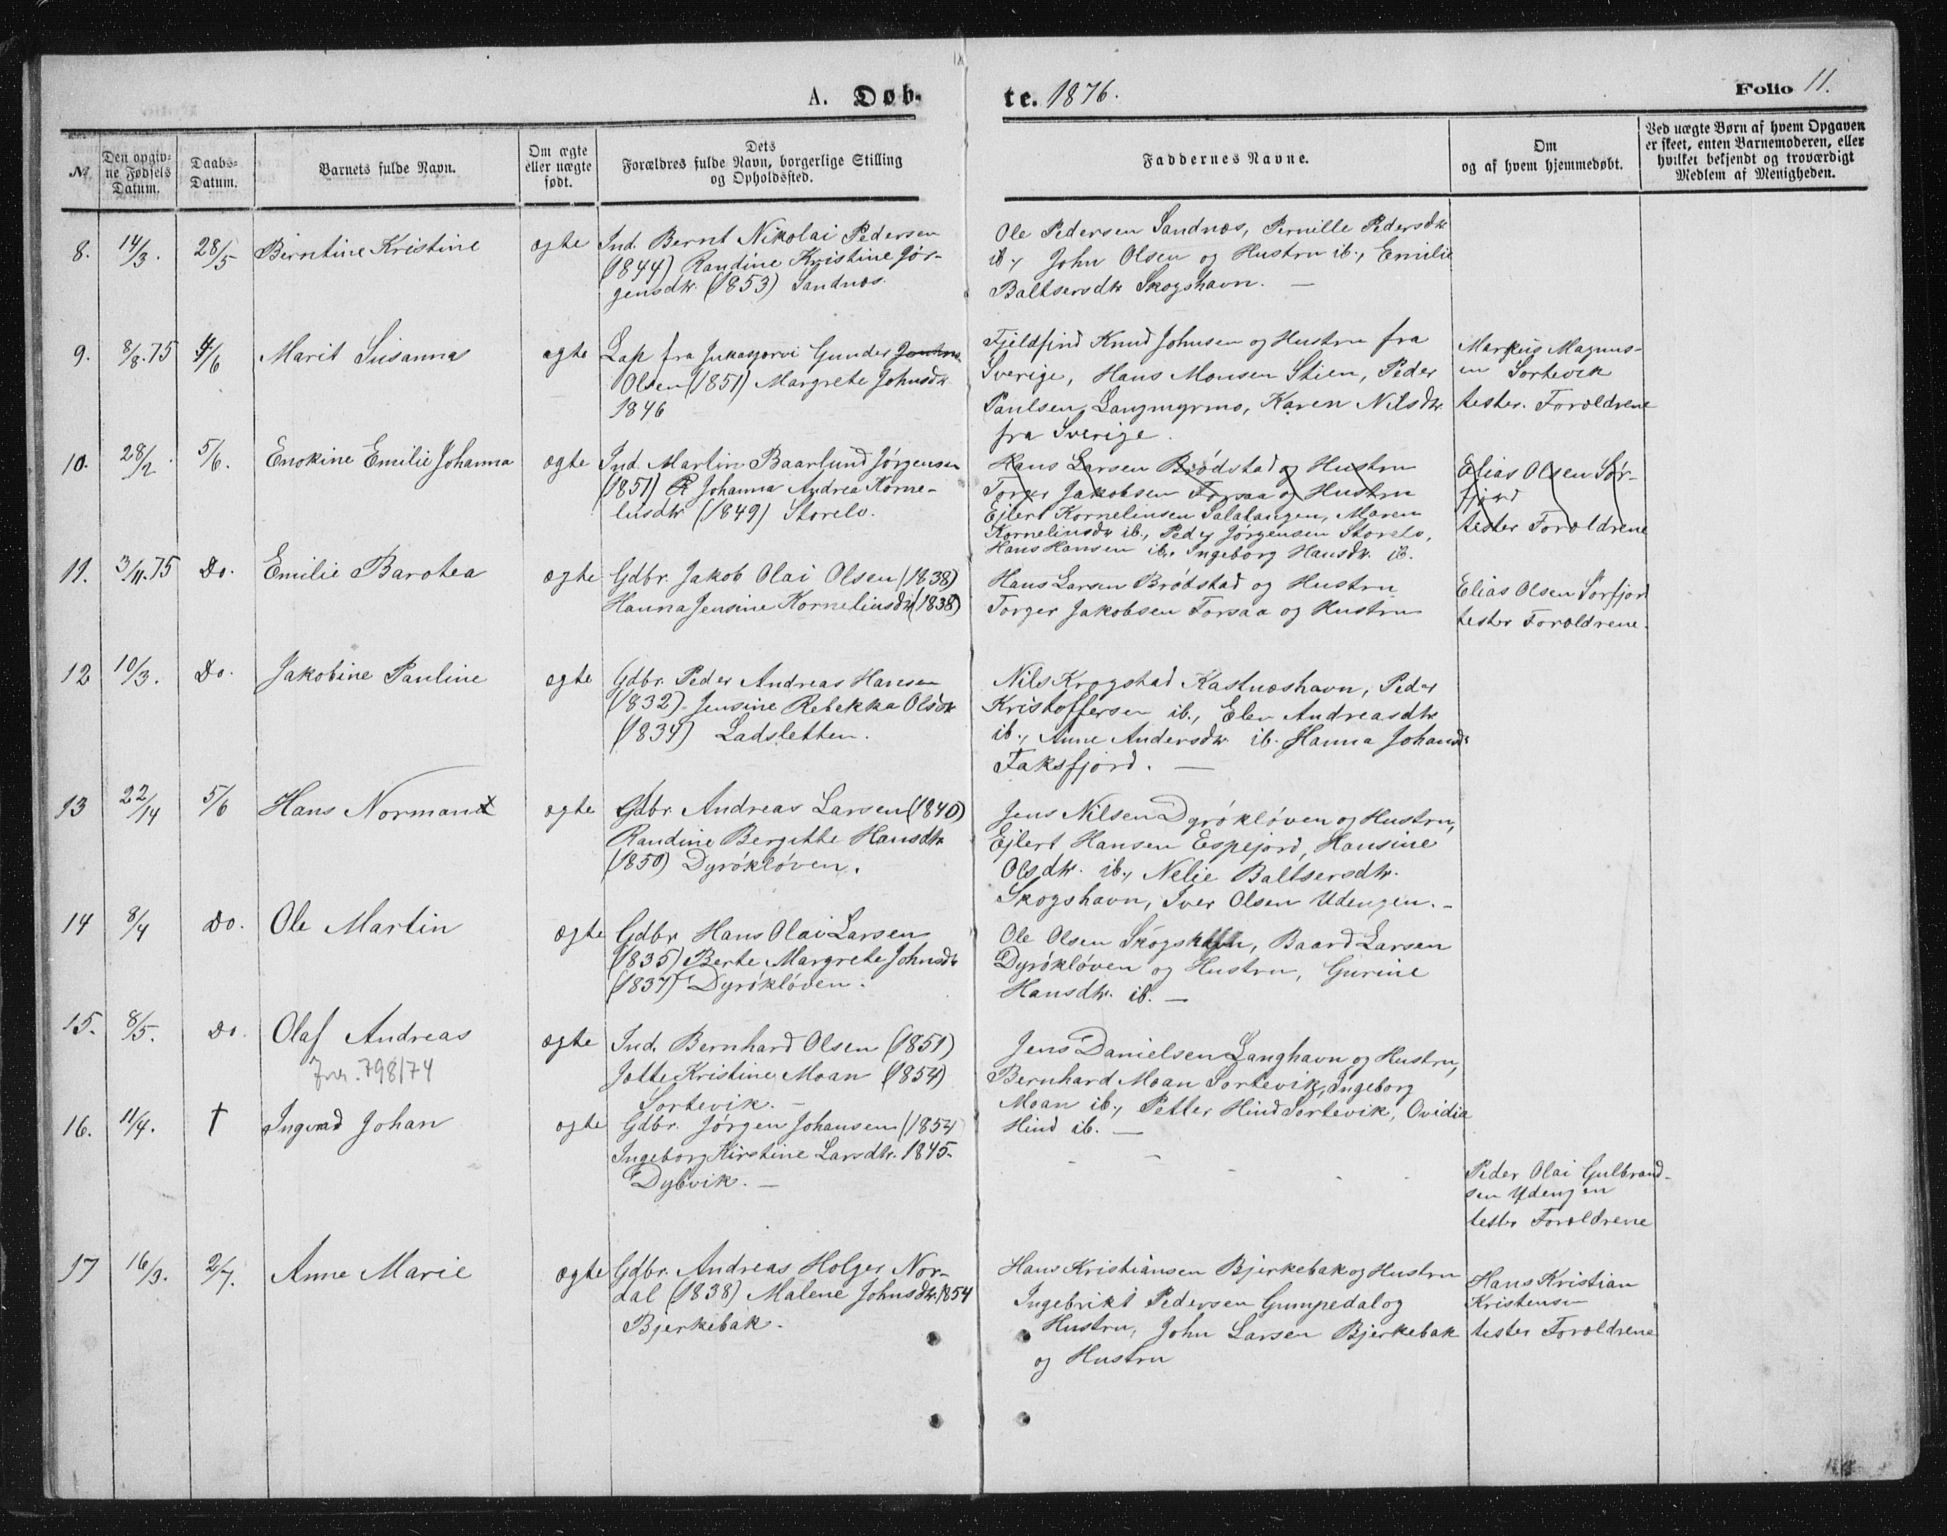 A. Døbte. 1876.
Folio 11.
No.
Den opgivne Fødsels Datum.
Daabs-Datum.
Barnets fulde Navn.
Om ægte eller uægte født.
Dets Forældres fulde Navn, borgerlige Stilling og Opholdssted.
Faddernes Navne.
Om og af hvem hjemmedøbt.
Ved uægte Børn af hvem Opgaven er skeet, enten Barnemoderen, eller hvilket bekjendt og troværdigt Medlem af Menigheden.
8. 14/3. 28/5 Berntine Kristine ægte
Ind. Bernt Nikolai Pedersen
(1844) Randine Kristine Jør-
gensdtr. (1853) Sandnæs.
Ole Pedersen Sandnæs, Pernille Pedersdtr
ib., John Olsen og Hustru ib., Emilie
Baltsersdtr Skogshavn. —
9. 8/8.75 4/6 Marit Susanna ægte
Lap fra Jukasjærvi Gunder
Olsen (1851) Margrete Johnsdtr.
1846
Fjeldfind Knud Johnsen og Hustru fra
Sverige, Hans Monsen Stien, Peder
Paulsen Langmyrmo, Karen Nilsdtr
fra Sverige.
Markus Magnus-
en Sortevik
tester. Forældrene
10. 28/2. 5/6. Enokine Emilie Johanna ægte
Ind. Martin Baarlund Jørgensen
(1851) Johanna Andrea Korne-
liusdtr (1849) Storelv.
Hans Larsen Brødstad og Hustru
Torger Jakobsen Forsaa og Hustru
Ejlert Korneliusen Salatangen, Maren
Korneliusdtr ib., Peder Jørgensen Storelv,
Hans Hansen ib., Ingeborg Hansdtr. ib.
Elias Olsen Sør-
fjord
tester Forældrene
11. 3/11.75 Do. Emilie Barotea ægte
Gdbr. Jakob Olai Olsen (1838)
Hanna Jensine Korneliusdtr (1838)
Hans Larsen Brødstad og Hustru
Torger Jakobsen Forsaa og Hustru
Elias Olsen Sørfjord
tester Forældrene.
12 10/3. Do. Jakobine Pauline ægte
Gdbr. Peder Andreas Hansen
(1832). Jensine Rebekka Olsdtr
(1834) Ladsletten.
Nils Krogstad Kastnæshavn, Peder
Kristoffersen ib., Elen Andreasdtr
ib., Anne Andersdtr. ib. Hanna Johansdtr
Faksfjord. —
13 22/14 5/6 Hans Norman ægte
Gdbr. Andreas Larsen (1840)
Randine Bergitte Hansdtr
(1850) Dyrökløven.
Jens Nilsen Dyrökløven og Hustru,
Ejlert Hansen Espejord, Hansine
Olsdtr. ib., Nelie Baltsersdtr.
Skogshavn, Iver Olsen Udengen. -
14 8/4 Do. Ole Martin ægte
Gdbr Hans Olai Larsen
(1835) Berte Margrete Johnsdtr
(1837) Dyrökløven.
Ole Olsen Skogshavn, Baard Larsen
Dyrökløven og Hustru, Gurine
Hansdtr. ib. —
15. 8/5. Do. Olaf Andreas ægte
798/74
Ind. Bernhard Olsen (1851)
Jette Kristine Moan (1854)
Sortevik. —
Jens Danielsen Langhavn og Hustru,
Bernhard Moan Sortevik, Ingeborg
Moan ib., Petter Hind Sortevik, Ovidia
Hind ib. —
16. 11/4. † Ingvad Johan ægte
Gdbr. Jørgen Johansen (1854)
Ingeborg Kirstine Larsdtr. 1845-
Dybvik. —
Peder Olai Gulbrand-
sen Udengen
tester Forældrene
17 16/3. 2/7. Anne Marie ægte
Gdbr. Andreas Holger Nor-
dal (1838) Malene Johnsdtr. 1854
Bjerkebak.
Hans Kristiansen Bjerkebak og Hustru
Ingebrikt Pedersen Gumpedal og
Hustru, John Larsen Bjerkebak
og Hustru
Hans Kristian
Kristensen
tester Forældrene